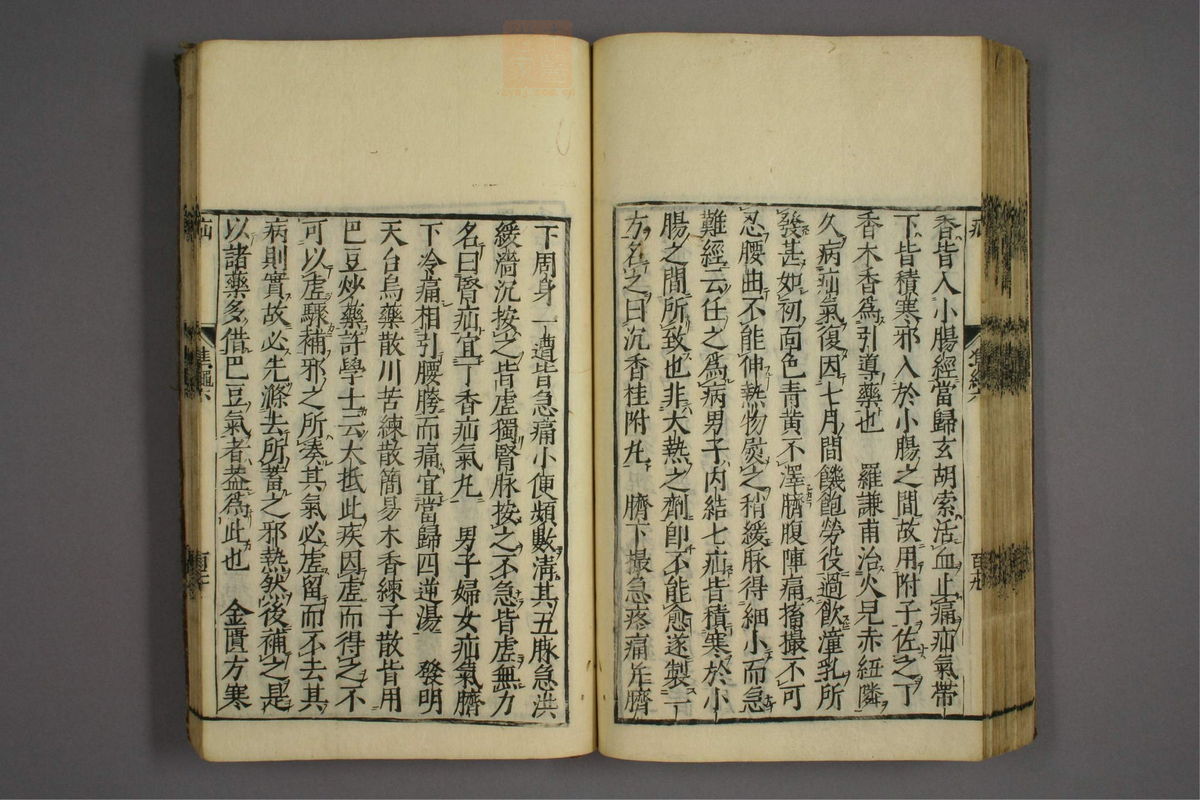 香皆入小腸經當歸玄胡索活血止痛疝氣帶
下皆積寒邪入於小腸之間故用附子佐之丁
香木香爲引導藥也　羅謙甫治火兒赤紐隣
久病疝氣復因七月間饑飽勞役過飲潼乳所
發甚如初面色青黃不澤臍腹陣痛搐撮不可
忍腰曲不能伸熱物熨之稍緩脉得細小而急
難經云任之爲病男子内結七疝皆積寒於小
腸之間所致也非大熱之劑即不能愈遂製一
方名之曰沉香桂附丸　臍下撮急疼痛并臍
下周身一遭皆急痛小便頻數清其五脉急洪
緩濇沉按之皆虚獨腎脉按之不急皆虚無力
名曰腎疝宜丁香疝氣丸　男子婦女疝氣臍
下冷痛相引腰胯而痛宜當歸四逆湯　發明
天台烏藥散川苦練散簡易木香練子散皆用
巴豆炒藥許學士云大抵此疾因虚而得之不
可以虚驟補邪之所湊其氣必虚留而不去其
病則實故必先滌去所蓄之邪熱然後補之是
以諸藥多借巴豆氣者蓋爲此也　金匱方寒
疝